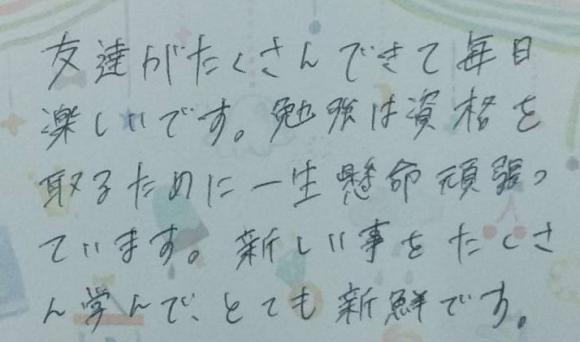 友達がたくさんできて毎日
楽しいです。勉強は資格を
取るために一生懸命頑張っ
ています。新しい事をたくさ
ん学んで、とても新鮮です。